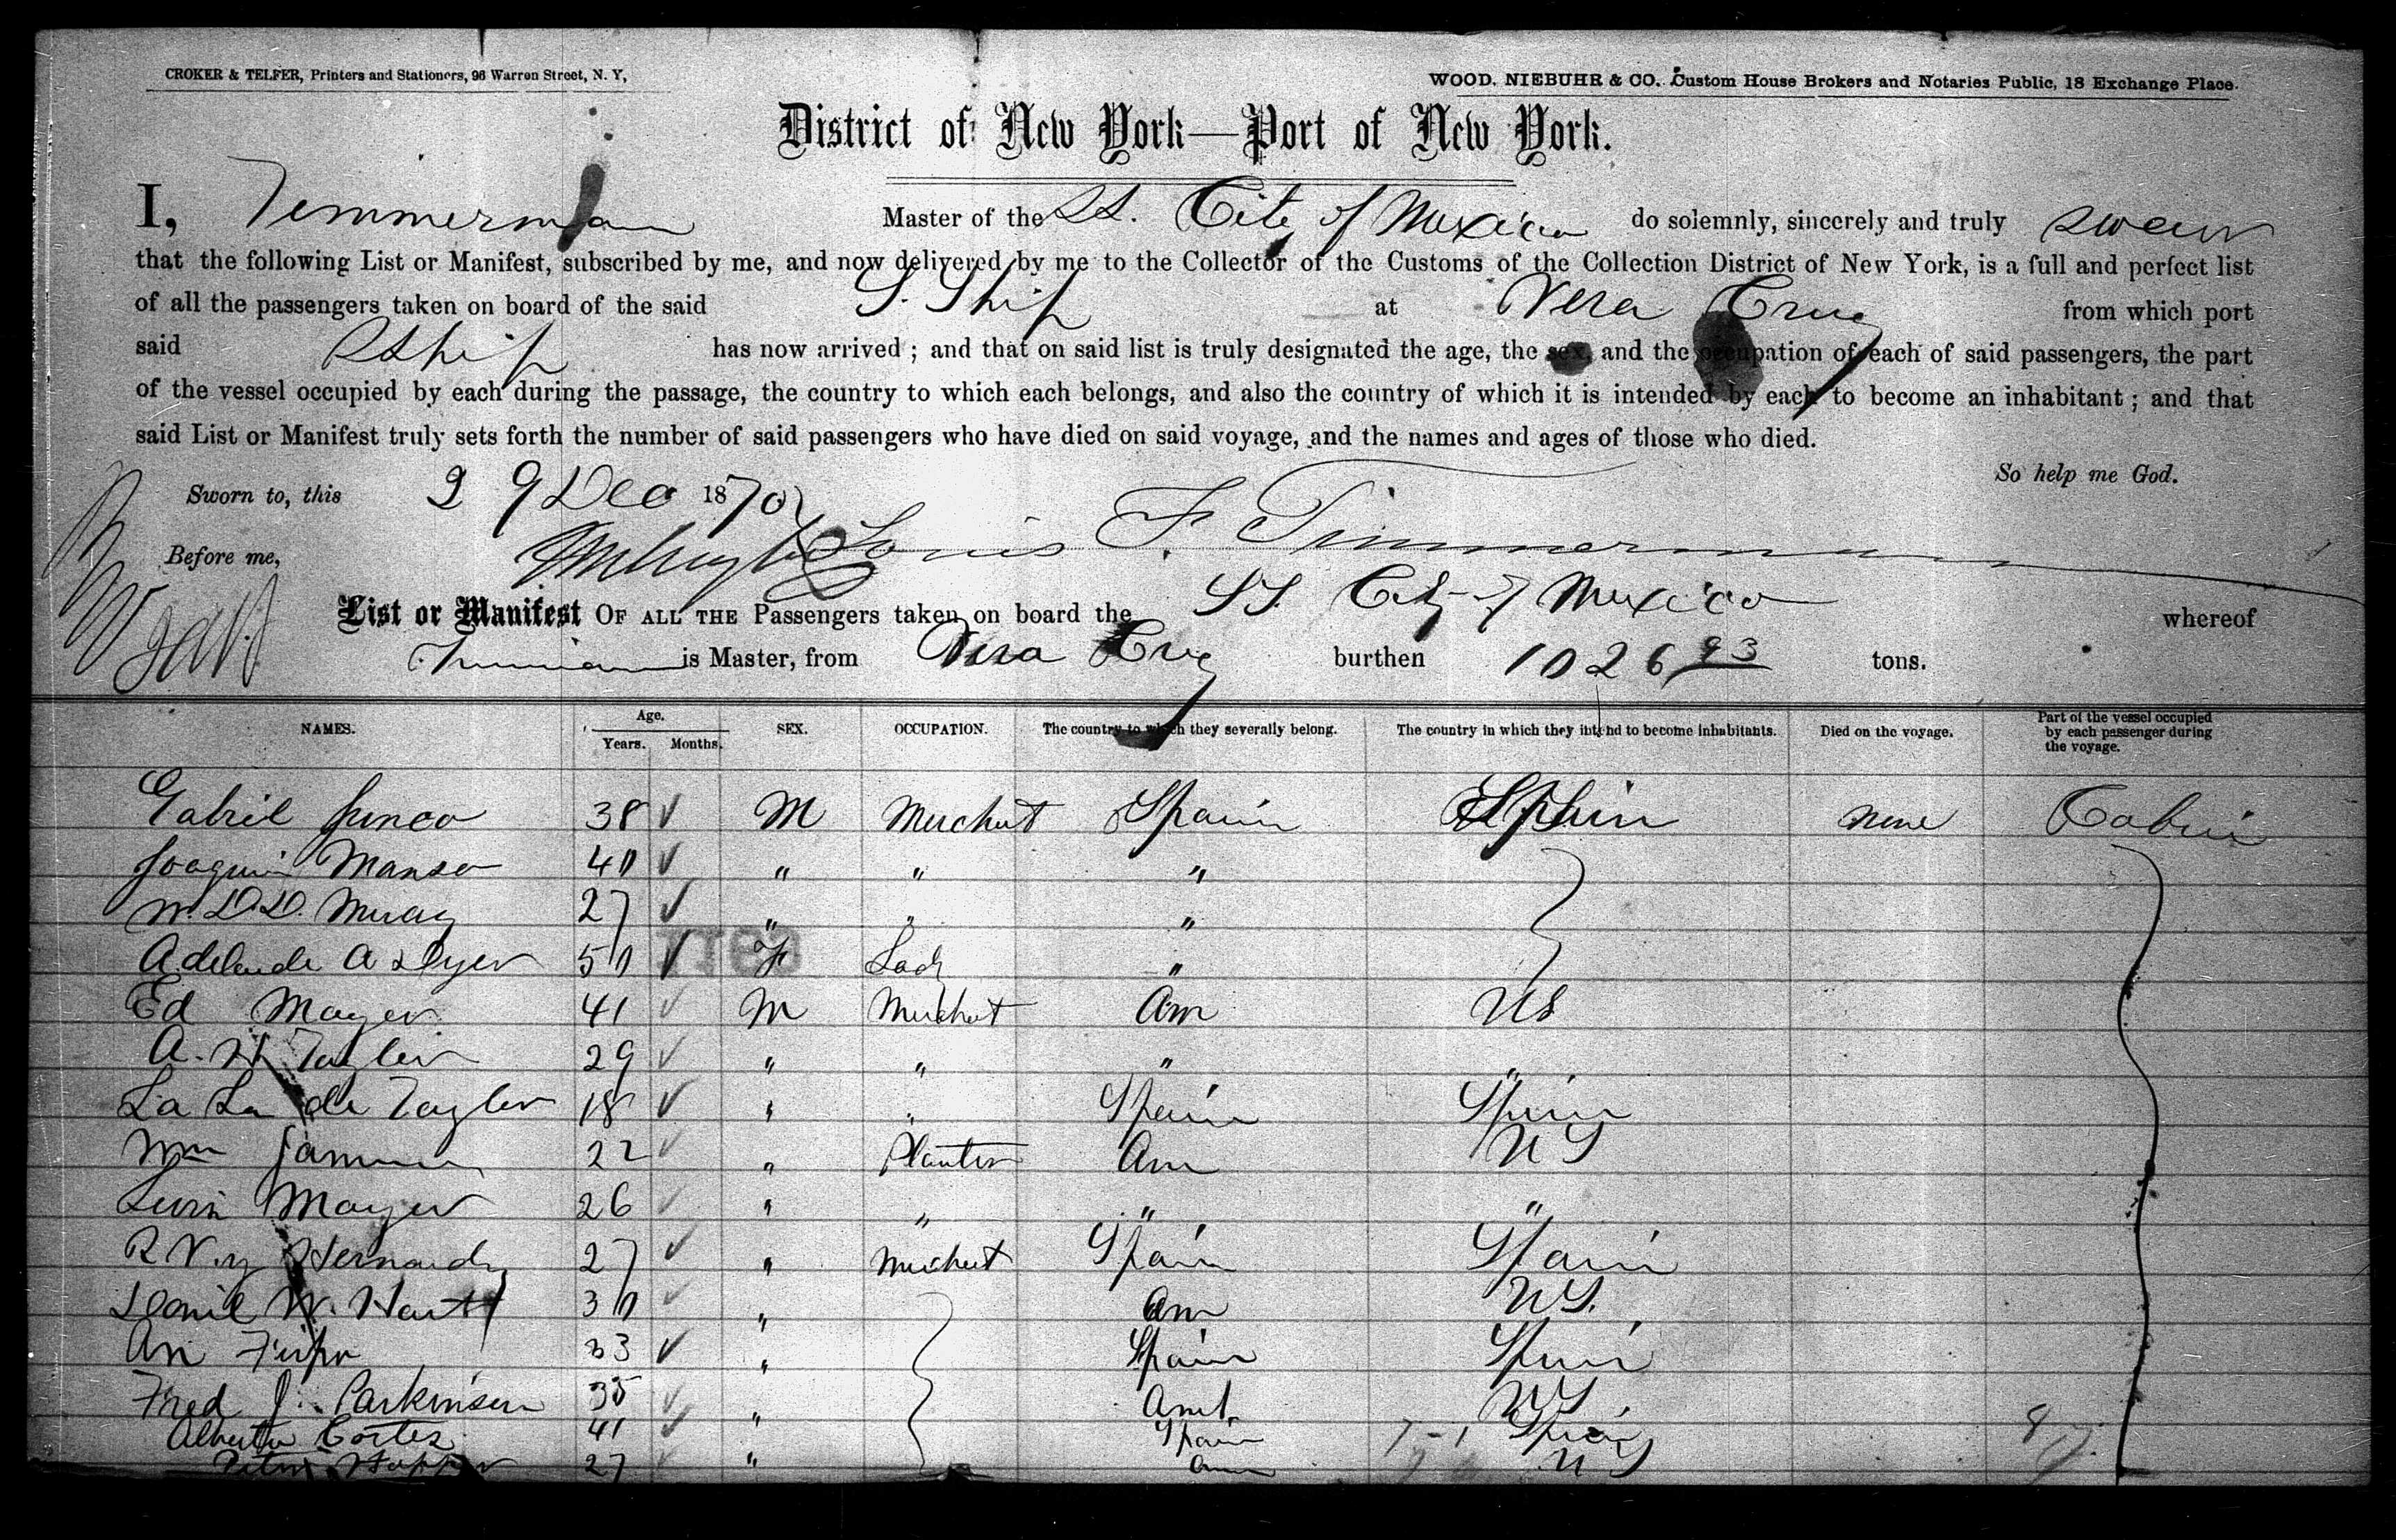 CROKER & TELFER, Printers and Stationers, 96 Warren Street, N. Y,
WOOD. NIEBUHR & CO. Custom House Brokers and Notaries Public, 18 Exchange Place.
District of New York—Port of New York.
I, Timmerman Master of the SS. City of Mexico do solemnly, sincerely and truly swear
that the following List or Manifest, subscribed by me, and now delivered by me to the Collector of the Customs of the Collection District of New York, is a full and perfect list
of all the passengers taken on board of the said S. Ship at Vera Cruz from which port
said SShip has now arrived ; and that on said list is truly designated the age, the sex, and the occupation of each of said passengers, the part
of the vessel occupied by each during the passage, the country to which each belongs, and also the country of which it is intended by each to become an inhabitant ; and that
said List or Manifest truly sets forth the number of said passengers who have died on said voyage, and the names and ages of those who died.
So help me God.
Sworn to, this 29 Dec 1870
Before me, Louis F. Timmerman
List or Manifest OF ALL THE Passengers taken on board the SS. City of Mexico whereof
Timmerman is Master, from Vera Cruz burthen 1026 93 tons.
NAMES. Age. Years. Months. SEX. OCCUPATION. The country to which they severally belong. The country in which they intend to become inhabitants. Died on the voyage. Part of the vessel occupied by each passenger during the voyage.
Gabriel Junco 38 ✓ M Merchant Spain Spain none Cabin
Joaquin Manso 40 ✓ " " "
27 ✓ " " "
Adelaide A Dyer 50 ✓ F Lady "
Ed Mayer 41 ✓ M Merchant Am US
A. Taylor 29 ✓ " " " "
La La de Taylor 18 ✓ " " Spain Spain
Wm 22 ✓ " Planter Am U S
Mayer 26 ✓ " " " "
R 27 ✓ " Merchant Spain Spain
W. Hartt 30 ✓ " Am U S.
33 ✓ " Spain Spain
Fred J. Parkinson 35 ✓ " Am U S
Alberto Cortes 41 ✓ " Spain Spain
Hopper 27 ✓ " Am U S